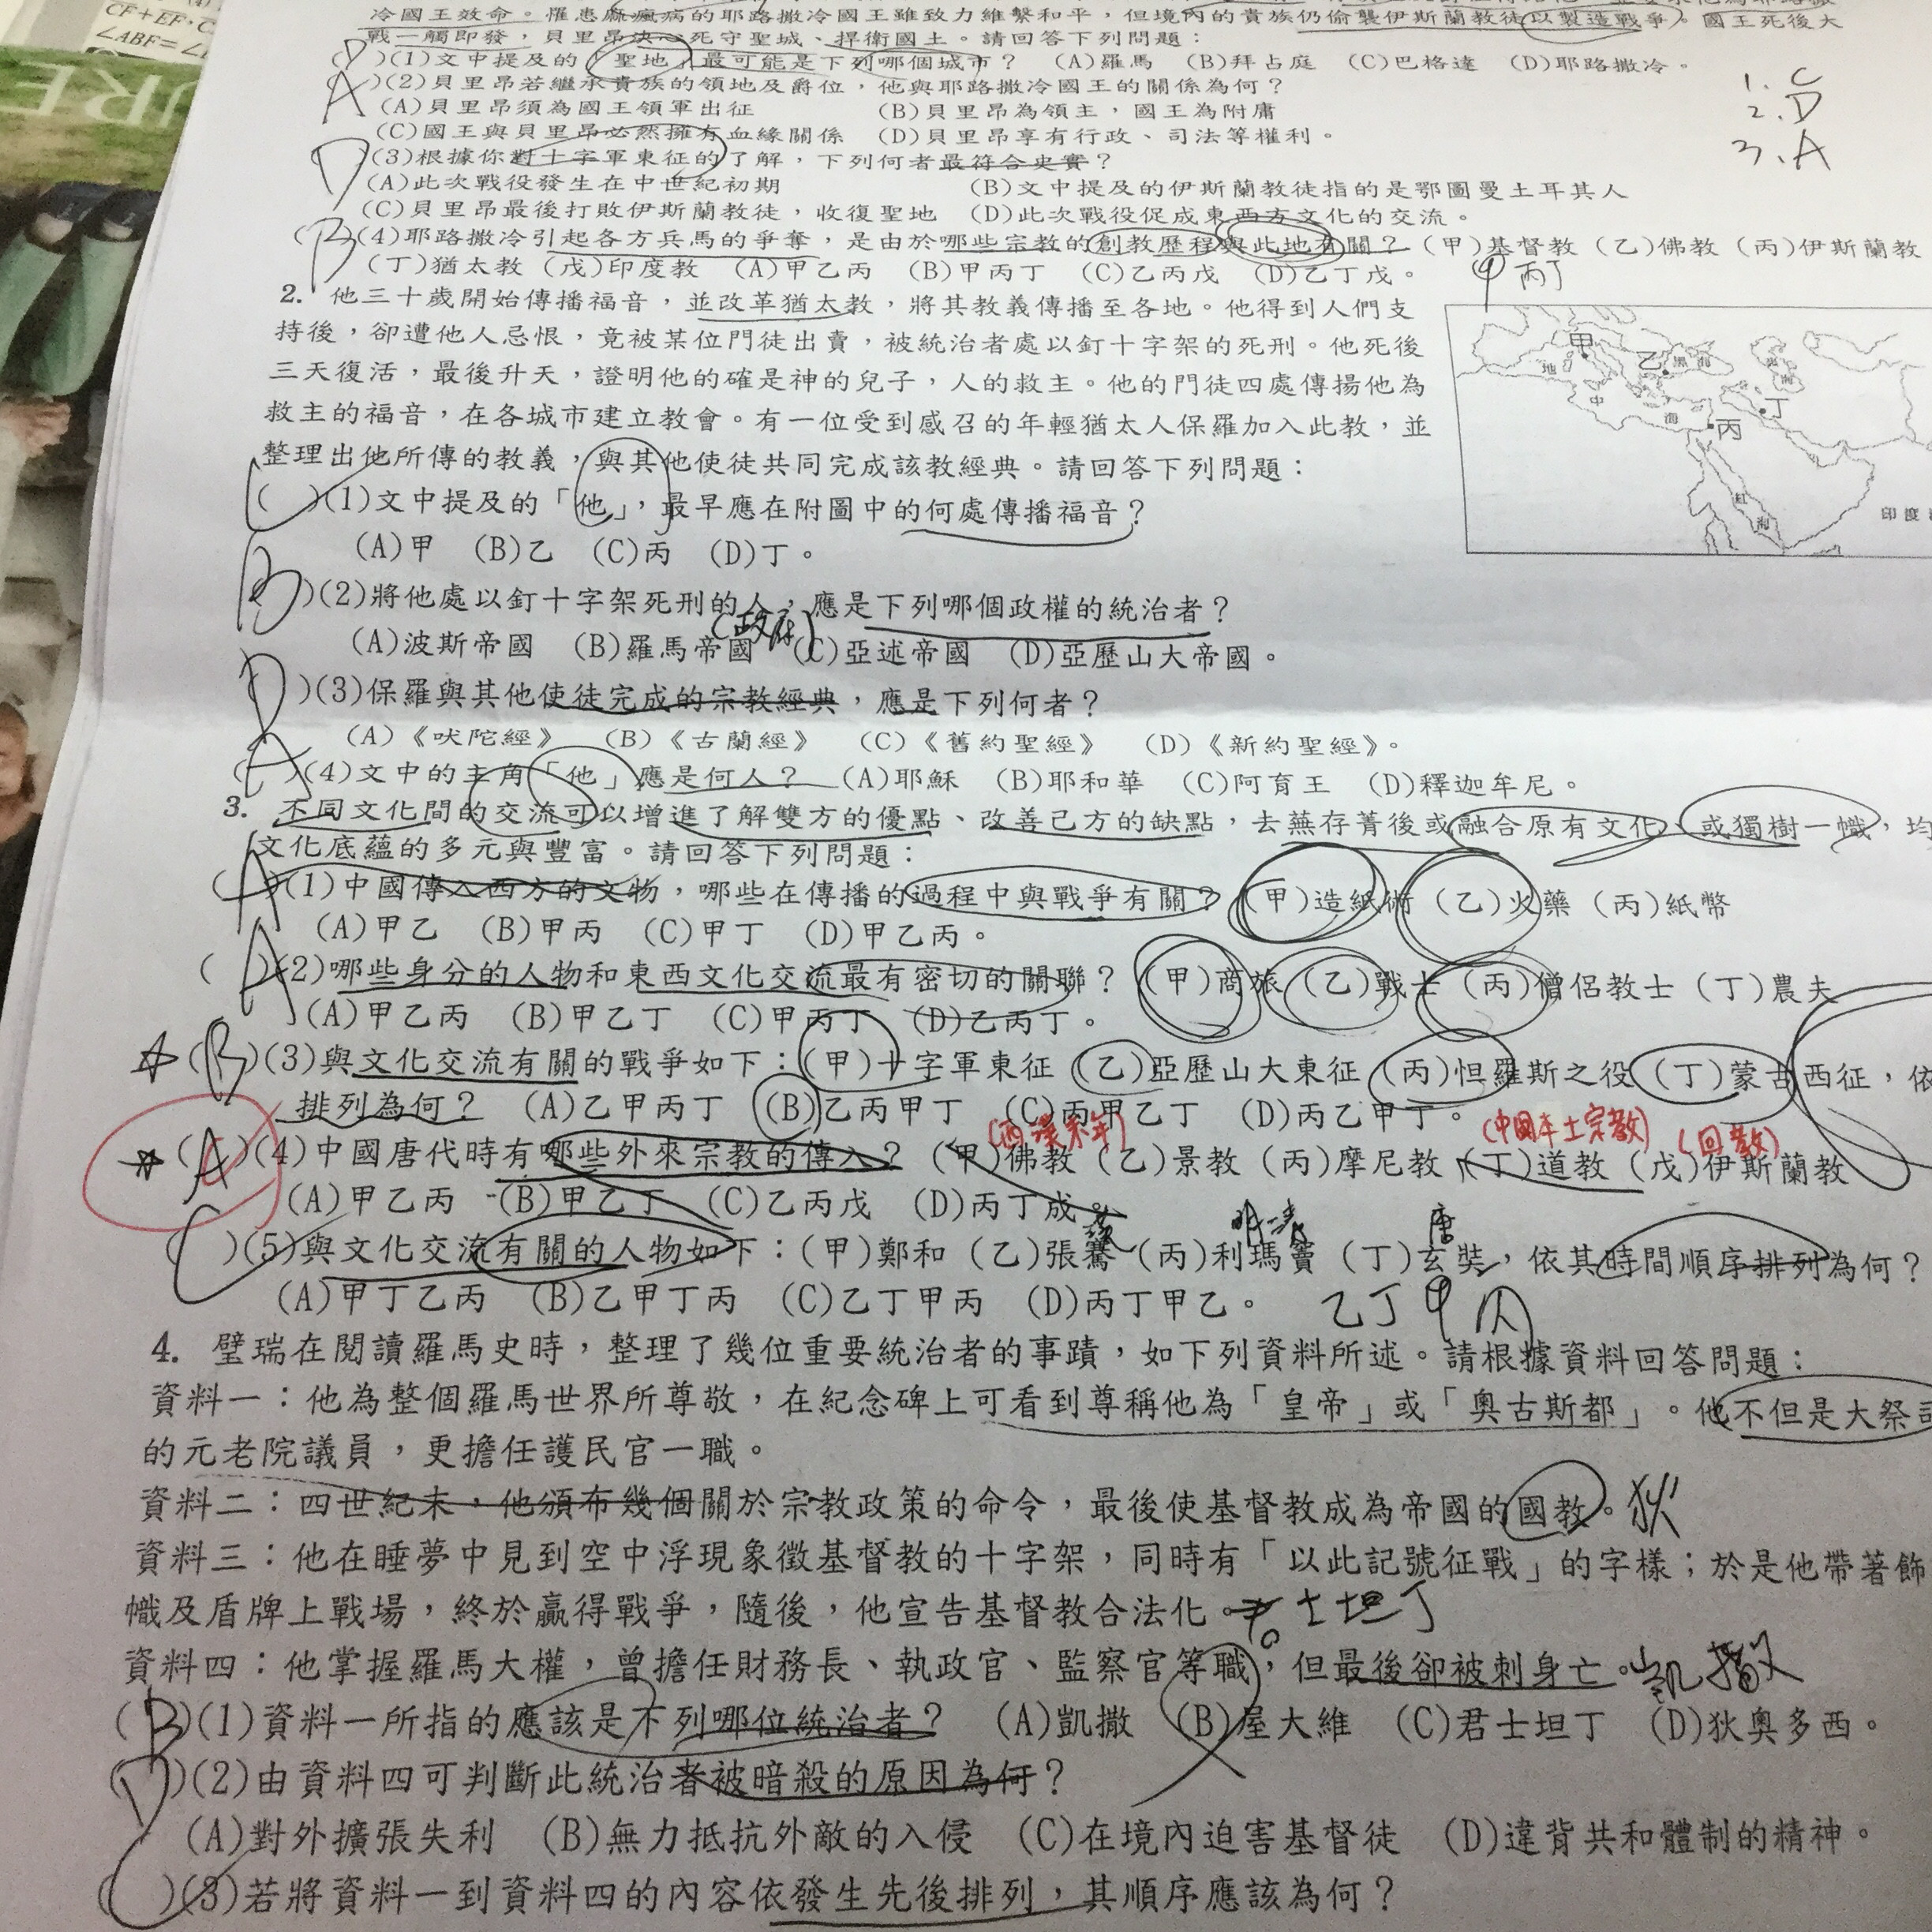 CF+EF,C
∠ABF=∠
URE
冷國王效命。罹患麻瘋病的耶路撒冷國王雖致力維繫和平,但境內的貴族仍偷襲伊斯蘭教徒以製造戰爭。國王死後大
戰一觸即發,貝里昂決心死守聖城、捍衛國土。請回答下列問題:
(D)(1)文中提及的「聖地」最可能是下列哪個城市?(A)羅馬 (B)拜占庭 (C)巴格達 (D)耶路撒冷。
1. C
2. D
3. A
(A)(2)貝里昂若繼承貴族的領地及爵位,他與耶路撒冷國王的關係為何?
(A)貝里昂須為國王領軍出征 (B)貝里昂為領主,國王為附庸
(C)國王與貝里昂必然擁有血緣關係 (D)貝里昂享有行政、司法等權利。
(D)(3)根據你對十字軍東征的了解,下列何者最符合史實?
(A)此次戰役發生在中世紀初期 (B)文中提及的伊斯蘭教徒指的是鄂圖曼土耳其人
(C)貝里昂最後打敗伊斯蘭教徒,收復聖地 (D)此次戰役促成東西方文化的交流。
(B)(4)耶路撒冷引起各方兵馬的爭奪,是由於哪些宗教的創教歷程與此地有關?(甲)基督教 (乙)佛教 (丙)伊斯蘭教
(丁)猶太教 (戊)印度教 (A)甲乙丙 (B)甲丙丁 (C)乙丙戊 (D)乙丁戊。 甲丙丁
2. 他三十歲開始傳播福音,並改革猶太教,將其教義傳播至各地。他得到人們支
持後,卻遭他人忌恨,竟被某位門徒出賣,被統治者處以釘十字架的死刑。他死後
三天復活,最後升天,證明他的確是神的兒子,人的救主。他的門徒四處傳揚他為
救主的福音,在各城市建立教會。有一位受到感召的年輕猶太人保羅加入此教,並
整理出他所傳的教義,與其他使徒共同完成該教經典。請回答下列問題:
甲 乙 丙 丁
地 中 海
黑海
裏海
紅海
印度
(C)(1)文中提及的「他」,最早應在附圖中的何處傳播福音?
(A)甲 (B)乙 (C)丙 (D)丁。
(B)(2)將他處以釘十字架死刑的人,應是下列哪個政權的統治者?
(政府)
(A)波斯帝國 (B)羅馬帝國 (C)亞述帝國 (D)亞歷山大帝國。
(D)(3)保羅與其他使徒完成的宗教經典,應是下列何者?
(A)《吠陀經》 (B)《古蘭經》 (C)《舊約聖經》 (D)《新約聖經》。
(A)(4)文中的主角「他」應是何人?(A)耶穌 (B)耶和華 (C)阿育王 (D)釋迦牟尼。
3. 不同文化間的交流可以增進了解雙方的優點、改善己方的缺點,去蕪存菁後或融合原有文化、或獨樹一幟,均
文化底蘊的多元與豐富。請回答下列問題:
(A)(1)中國傳入西方的文物,哪些在傳播的過程中與戰爭有關?(甲)造紙術 (乙)火藥 (丙)紙幣
(A)甲乙 (B)甲丙 (C)甲丁 (D)甲乙丙。
(A)(2)哪些身分的人物和東西文化交流最有密切的關聯?(甲)商旅 (乙)戰士 (丙)僧侶教士 (丁)農夫
(A)甲乙丙 (B)甲乙丁 (C)甲丙丁 (D)乙丙丁。
☆(B)(3)與文化交流有關的戰爭如下:(甲)十字軍東征 (乙)亞歷山大東征 (丙)怛羅斯之役 (丁)蒙古西征,依
排列為何?(A)乙甲丙丁 (B)乙丙甲丁 (C)丙甲乙丁 (D)丙乙甲丁。
(西漢末年) (中國本土宗教) (回教)
☆(A)(4)中國唐代時有哪些外來宗教的傳入?(甲)佛教 (乙)景教 (丙)摩尼教 (丁)道教 (戊)伊斯蘭教
(A)甲乙丙 (B)甲乙丁 (C)乙丙戊 (D)丙丁戊。
漢 明清 唐
(C)(5)與文化交流有關的人物如下:(甲)鄭和 (乙)張騫 (丙)利瑪竇 (丁)玄奘,依其時間順序排列為何?
(A)甲丁乙丙 (B)乙甲丁丙 (C)乙丁甲丙 (D)丙丁甲乙。 乙丁甲丙
4. 璧瑞在閱讀羅馬史時,整理了幾位重要統治者的事蹟,如下列資料所述。請根據資料回答問題:
資料一:他為整個羅馬世界所尊敬,在紀念碑上可看到尊稱他為「皇帝」或「奧古斯都」。他不但是大祭司
的元老院議員,更擔任護民官一職。
資料二:四世紀末,他頒布幾個關於宗教政策的命令,最後使基督教成為帝國的國教。狄
資料三:他在睡夢中見到空中浮現象徵基督教的十字架,同時有「以此記號征戰」的字樣;於是他帶著飾
幟及盾牌上戰場,終於贏得戰爭,隨後,他宣告基督教合法化。士坦丁
資料四:他掌握羅馬大權,曾擔任財務長、執政官、監察官等職,但最後卻被刺身亡。凱撒
(B)(1)資料一所指的應該是下列哪位統治者?(A)凱撒 (B)屋大維 (C)君士坦丁 (D)狄奧多西。
(D)(2)由資料四可判斷此統治者被暗殺的原因為何?
(A)對外擴張失利 (B)無力抵抗外敵的入侵 (C)在境內迫害基督徒 (D)違背共和體制的精神。
(C)(3)若將資料一到資料四的內容依發生先後排列,其順序應該為何?